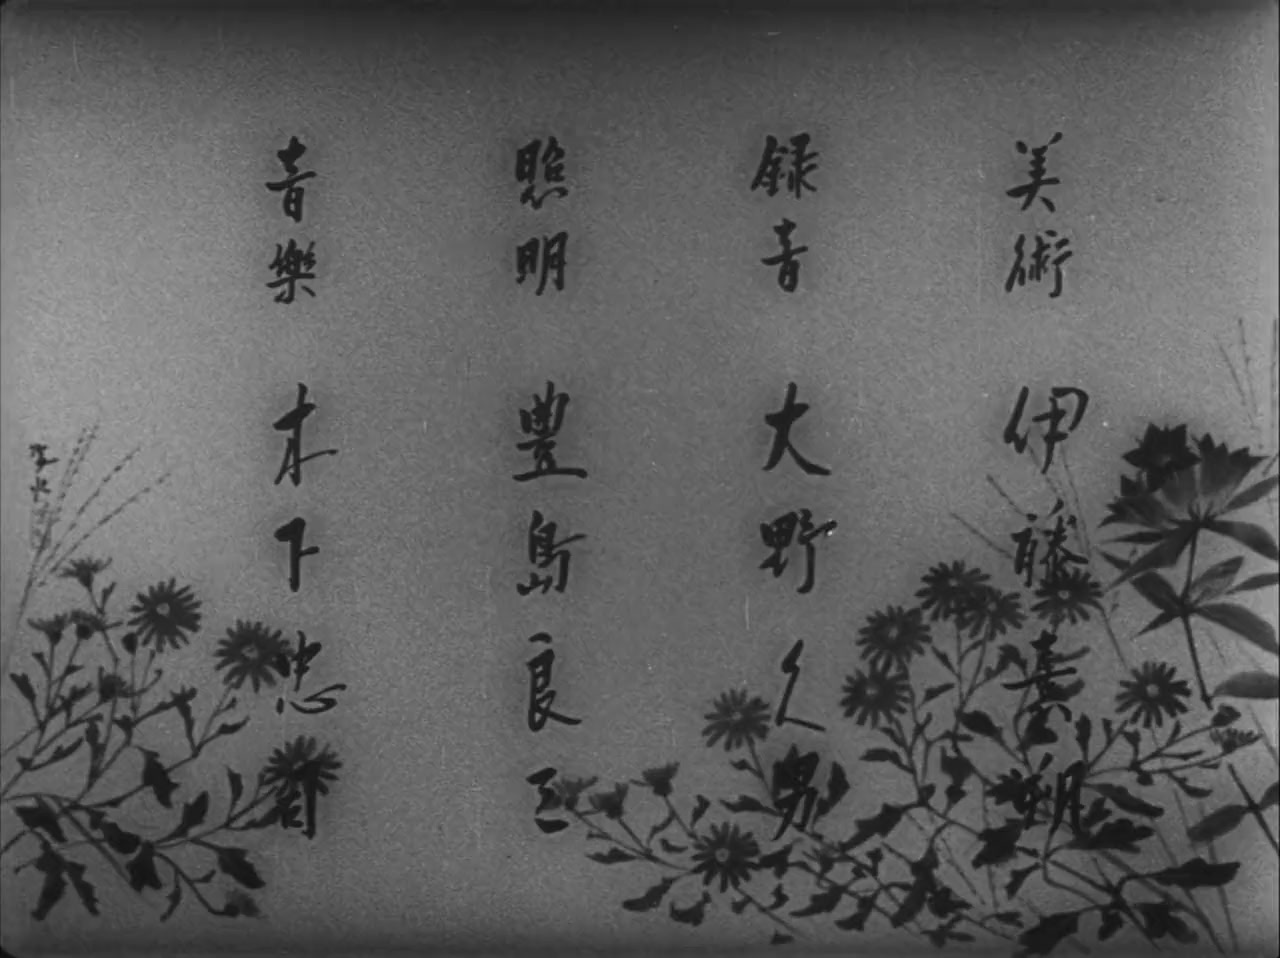 美術 伊藤熹朔
録音 大野久男
照明 豊島良三
音樂 木下忠司